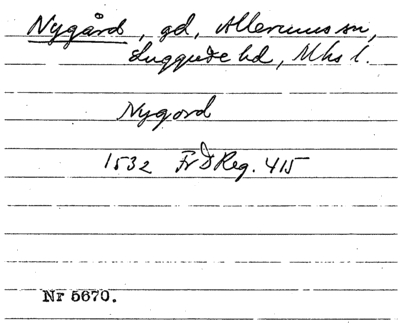 Nygård, gd, Allerums sn,
Luggude hd, Mhs l.
Nygord
1532 FrDReg. 415
Nr 5670.